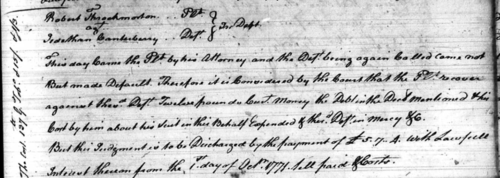 Robert Throckmorton Plt
agt
In Debt
Jedethan Canterberry Deft
This day Came the Plt by his Attorney and the Deft being again Called came not
But made Default. Therefore it is Considered by the Court that the Plt recover
against the sd Deft Twelve pounds Curt Money the Debt in the Decl mentioned & his
Cost by him about his Suit in this Behalf Expended & the sd Deft in Mercy &C
But this Judgment is to be Discharged by the payment of £5.7.4. with Lawfull
Interest thereon from the 1st day of Octr 1771 till paid & Costs.